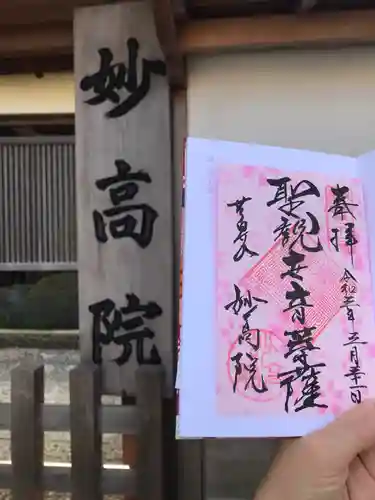 妙高院
奉拝
令和三年三月三十一日
聖観世音菩薩
妙高院